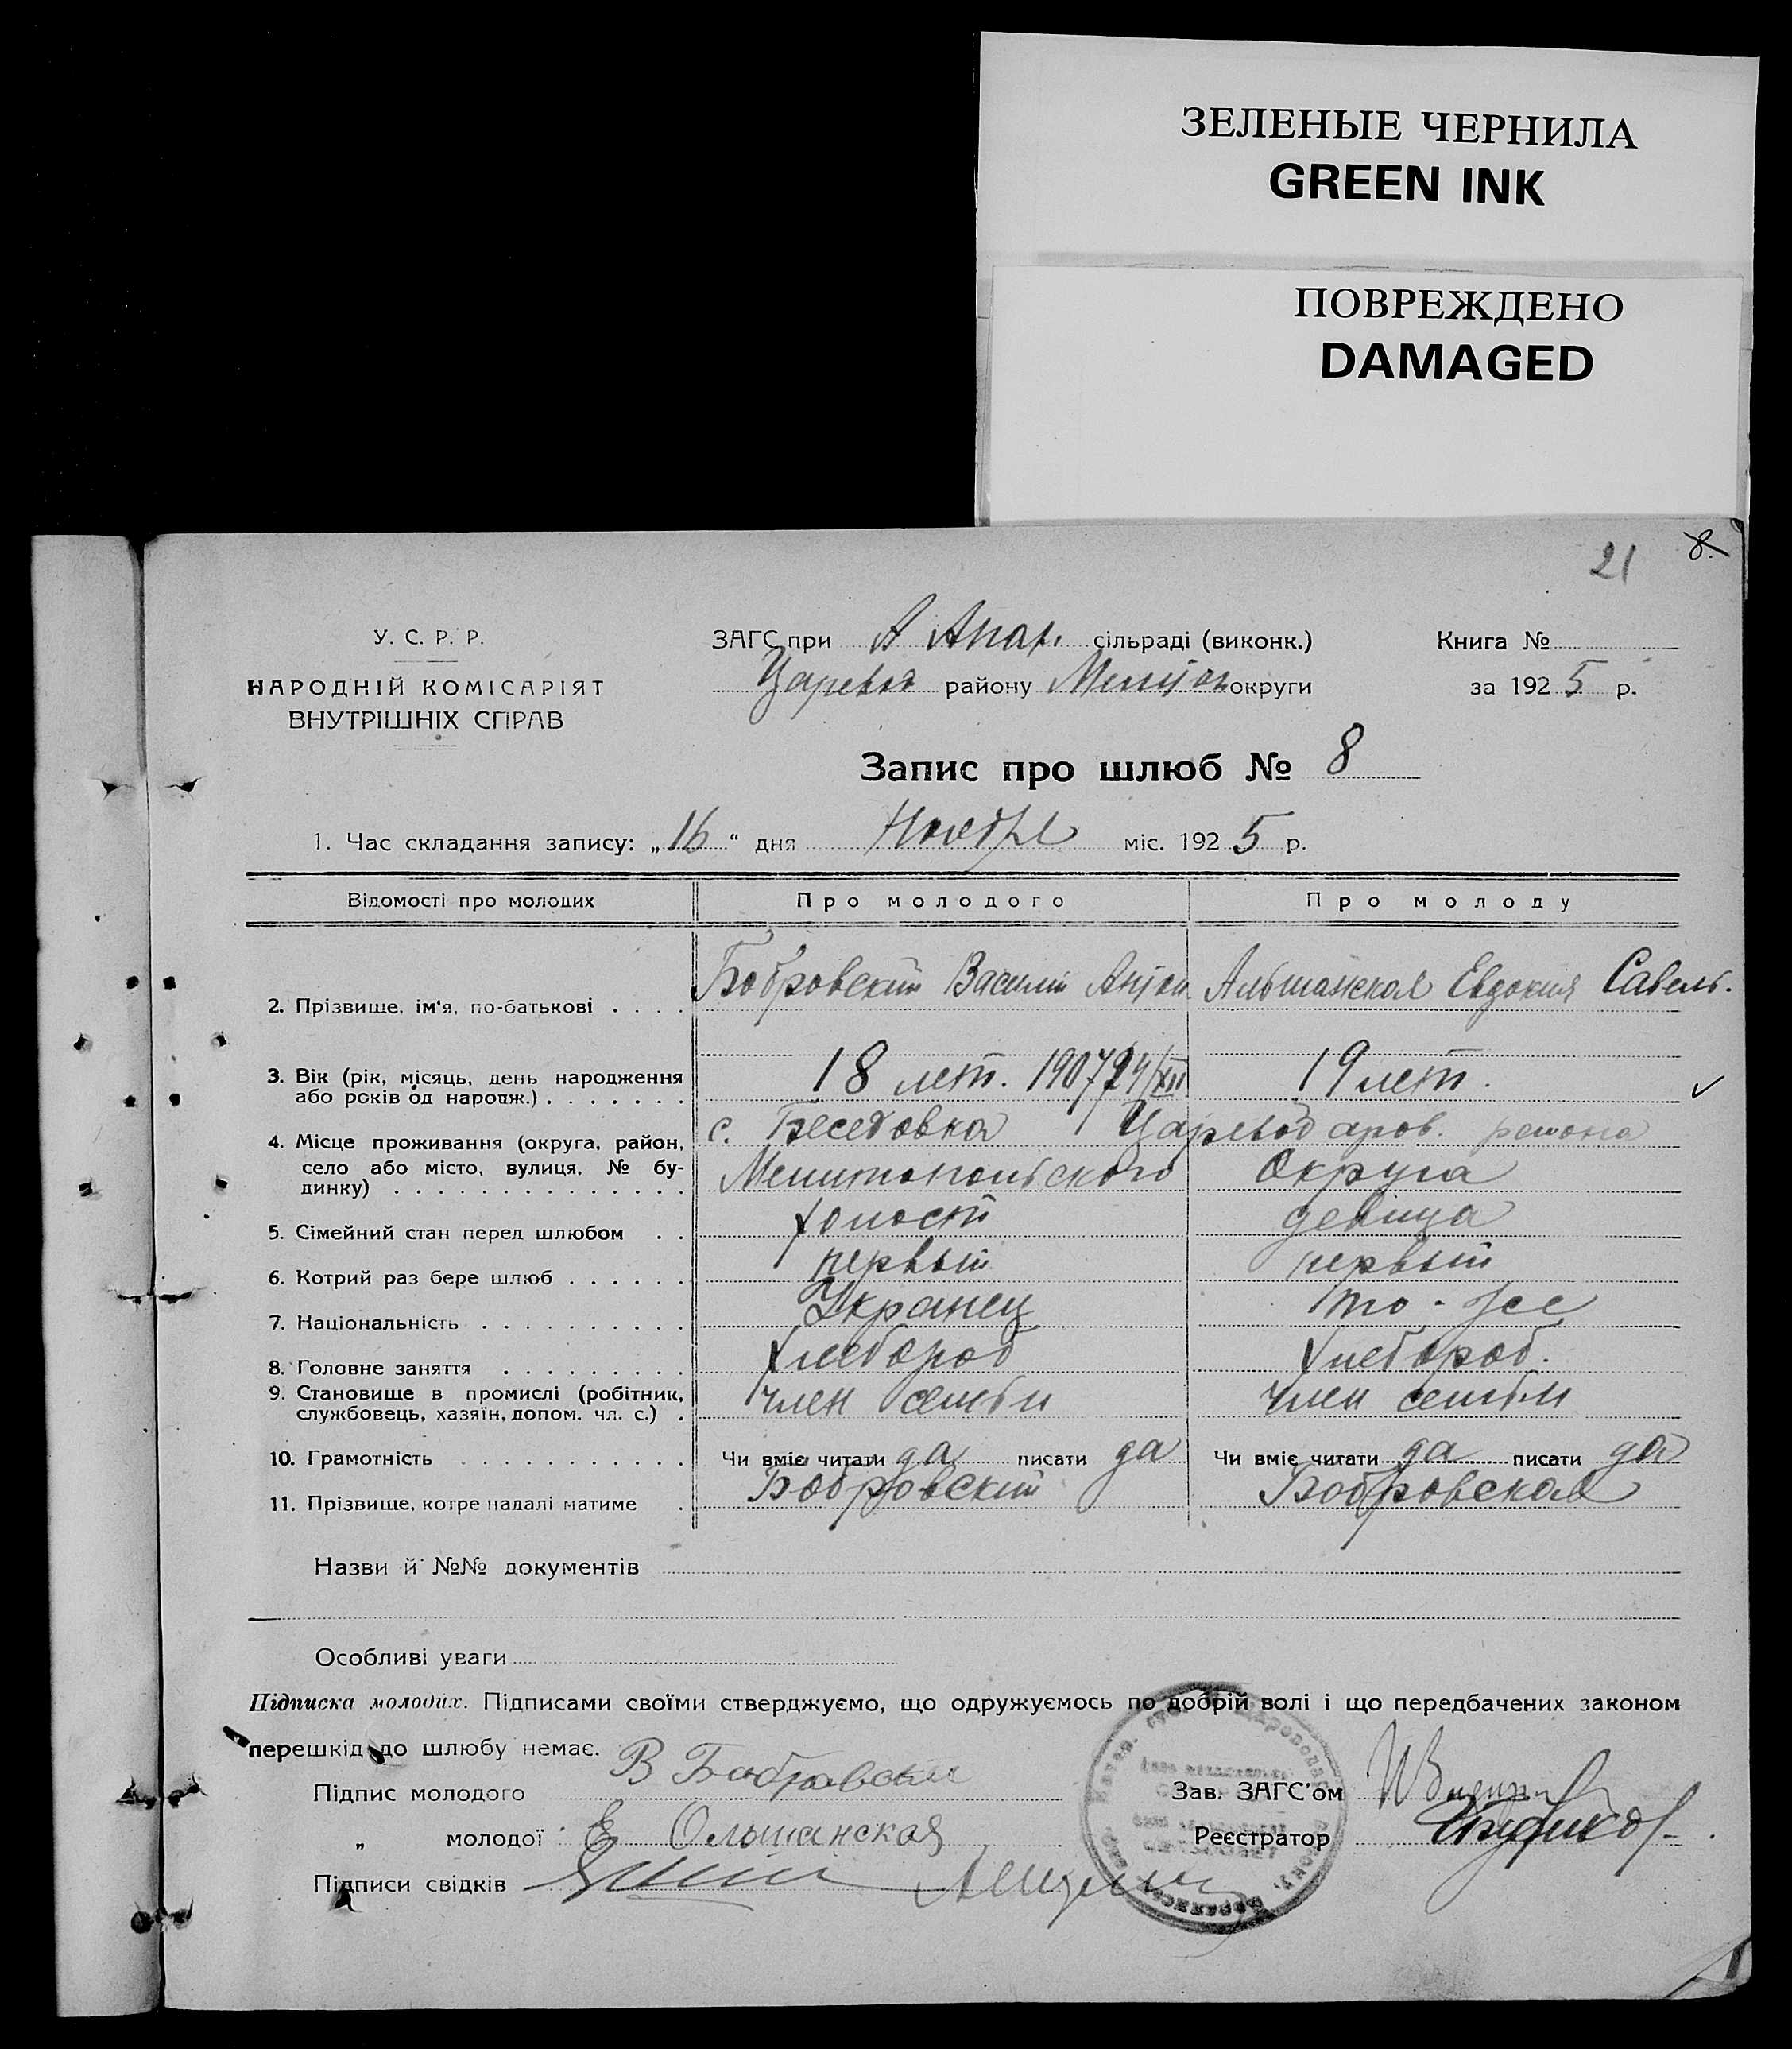 ЗЕЛЕНЫЕ ЧЕРНИЛА
GREEN INK
ПОВРЕЖДЕНО
DAMAGED
21 8.
У. С. Р. Р.
НАРОДНІЙ КОМІСАРІЯТ
ВНУТРІШНІХ СПРАВ
ЗАГС при А Апах. сільраді (виконк.)
Царевод району Мелитоп округи
Книга №
за 1925 р.
Запис про шлюб № 8
1. Час складання запису: „16“ дня Ноября міс. 1925 р.
Відомості про молодих Про молодого Про молоду
2. Прізвище, ім'я, по-батькові . . . . Бобровский Василий Антон Альшанская Евдокия Савель.
3. Вік (рік, місяць, день народження
або років од народж.) . . . . . . . 18 лет. 1907 24/XII 19 лет.
4. Місце проживання (округа, район, с. Беседовка Царевод аров. района
село або місто, вулиця, № бу-
динку) . . . . . . . . . . . . . . Мелитопольского Округа
5. Сімейний стан перед шлюбом . . холост девица
6. Котрий раз бере шлюб . . . . . . первый первый
7. Національність . . . . . . . . . . Украинец то-же
8. Головне заняття . . . . . . . . . хлебороб хлебороб.
9. Становище в промислі (робітник,
службовець, хазяїн, допом. чл. с.) . член семьи член семьи
10. Грамотність . . . . . . . . . . . Чи вміє читати да писати да Чи вміє читати да писати да
11. Прізвище, котре надалі матиме . Бобровский Бобровская
Назви й №№ документів
Особливі уваги
Підписка молодих. Підписами своїми стверджуємо, що одружуємось по добрій волі і що передбачених законом
перешкід до шлюбу немає.
Підпис молодого В Бобровский
Зав. ЗАГС'ом
„ молодої Е Ольшанская
Реєстратор
Підписи свідків